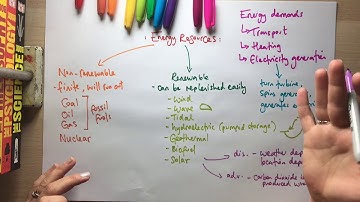 Energy Resources:
Energy demands
Transport
Heating
Electricity generation
Non-renewable
- finite, will run out
Coal
Oil
Gas
Fossil
fuels
Nuclear
Renewable
- can be replenished easily
- Wind
- Wave
- Tidal
- hydroelectric (pumped storage)
- Geothermal
- Biofuel
- Solar
turn turbine,
spins gener
generates
dis. - weather dep
location dep
adv. - Carbon dioxide
produced w